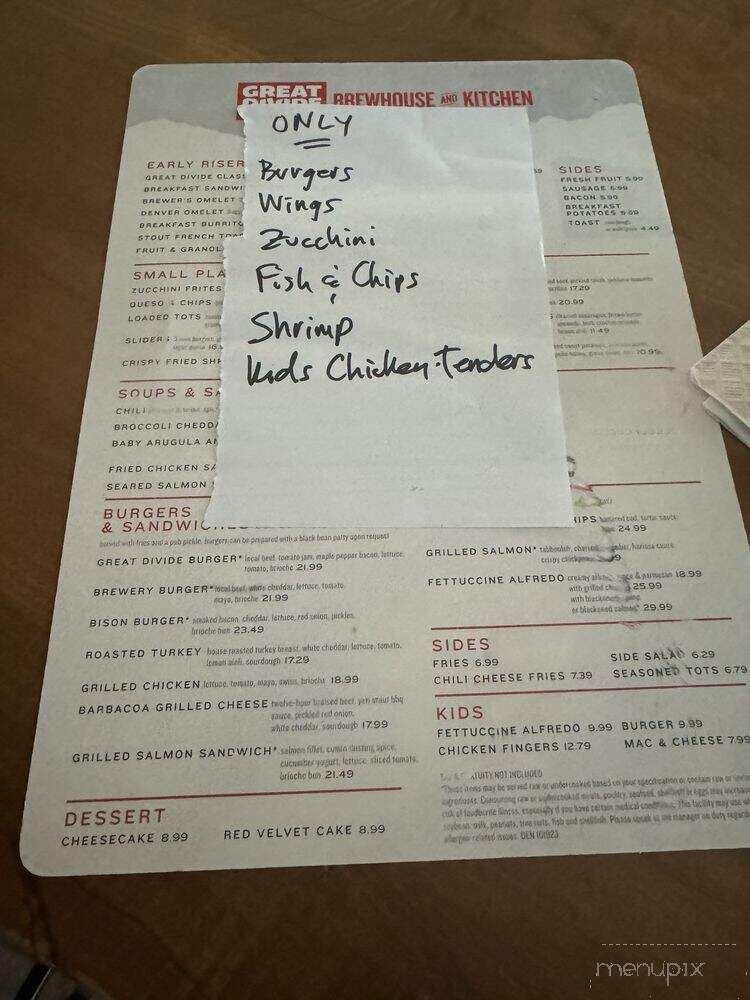 GREAT
DIVIDE BREWHOUSE AND KITCHEN
ONLY
Burgers
Wings
Zucchini
Fish & Chips
Shrimp
Kids Chicken Tenders
EARLY RISER
GREAT DIVIDE CLAS
BREAKFAST SANDWI
BREWER'S OMELET
DENVER OMELET
BREAKFAST BURRITO
STOUT FRENCH TOA
FRUIT & GRANOL
SIDES
FRESH FRUIT 5.99
SAUSAGE 6.99
BACON 6.99
BREAKFAST
POTATOES
TOAST 4.49
SMALL PLA
ZUCCHINI FRITES
QUESO & CHIPS
LOADED TOTS
SLIDER
CRISPY FRIED SH
17.29
20.99
11.49
10.95
SOUPS & SA
CHILI
BROCCOLI CHEDDA
BABY ARUGULA A
FRIED CHICKEN SA
SEARED SALMON
BURGERS
& SANDWICHES
served with fries and a pub pickle. burgers can be prepared with a black bean patty upon request
GREAT DIVIDE BURGER* local beef, tomato jam, maple pepper bacon, lettuce,
tomato, brioche 21.99
BREWERY BURGER* local beef, white cheddar, lettuce, tomato,
mayo, brioche 21.99
BISON BURGER* smoked bacon, cheddar, lettuce, red onion, pickles,
brioche bun 23.49
ROASTED TURKEY house roasted turkey breast, white cheddar, lettuce, tomato,
lemon aioli, sourdough 17.29
GRILLED CHICKEN lettuce, tomato, mayo, swiss, brioche 18.99
BARBACOA GRILLED CHEESE twelve-hour braised beef, yeti stout bbq
sauce, pickled red onion,
white cheddar, sourdough 17.99
GRILLED SALMON SANDWICH* salmon fillet, cumin dusting spice,
cucumber yogurt, lettuce, sliced tomato,
brioche bun 21.49
HIPS battered cod, tartar sauce,
24.99
GRILLED SALMON* tabbouleh, charred harissa sauce,
crispy chickpeas
FETTUCCINE ALFREDO creamy & parmesan 18.99
with grilled 25.99
with blackened
or blackened salmon* 29.99
SIDES
FRIES 6.99
CHILI CHEESE FRIES 7.39
SIDE SALAD 6.29
SEASONED TOTS 6.79
KIDS
FETTUCCINE ALFREDO 9.99 BURGER 9.99
CHICKEN FINGERS 12.79 MAC & CHEESE 7.99
DESSERT
CHEESECAKE 8.99
RED VELVET CAKE 8.99
GRATUITY NOT INCLUDED
*These items may be served raw or undercooked based on your specification or contain raw or
ingredients. Consuming raw or undercooked meats, poultry, seafood, shellfish or eggs may increase
risk of foodborne illness, especially if you have certain medical conditions. This facility may use
soybean, milk, peanuts, tree nuts, fish and shellfish. Please speak to the manager on duty regarding
allergen related issues. DEN 101923
menupix